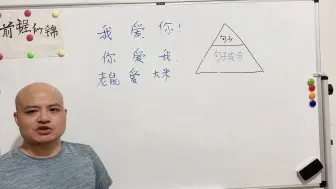 前程似锦
我 爱 你!
你 爱 我
老鼠 爱 大米
句子
句子成分